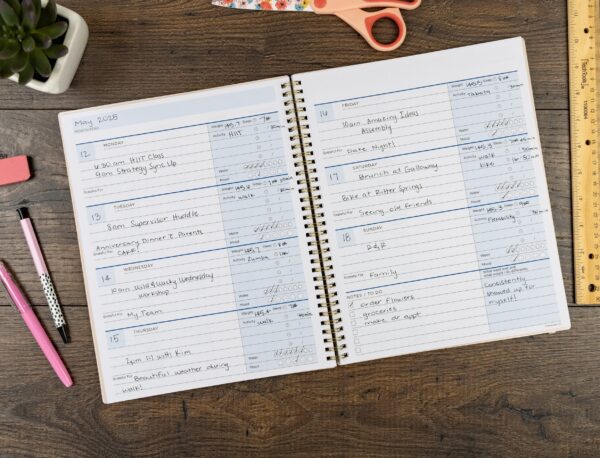 May 2025
12 MONDAY
6:30 am HIIT Class
9am Strategy Sync Up
Grateful For
Weight 145.7 Sleep
Activity HIIT
Water
Mood
13 TUESDAY
8am Supervisor Huddle
Anniversary Dinner @ Parents
Grateful For CAKE!
Weight Sleep
Activity Walk
Water
Mood
14 WEDNESDAY
10am Wild & Wacky Wednesday
Workshop
Grateful For My Team
Weight 145.7 Sleep
Activity Zumba
Water
Mood
15 THURSDAY
1pm 1:1 with Kim
Grateful For Beautiful weather during
walk!
Weight Sleep
Activity Walk
Water
Mood
16 FRIDAY
10am Amazing Ideas
Assembly
Grateful For Date Night!
Weight Sleep
Activity Tabata
Water
Mood
17 SATURDAY
Brunch at Galloway
Bike at Bitter Springs
Grateful For Seeing old friends
Weight Sleep
Activity Walk
Bike
Water
Mood
18 SUNDAY
R & R
Grateful For Family
Weight Sleep
Activity Flexibility
Water
Mood
NOTES / TO DO
order flowers
groceries
make dr appt
Consistently
showed up for
myself!